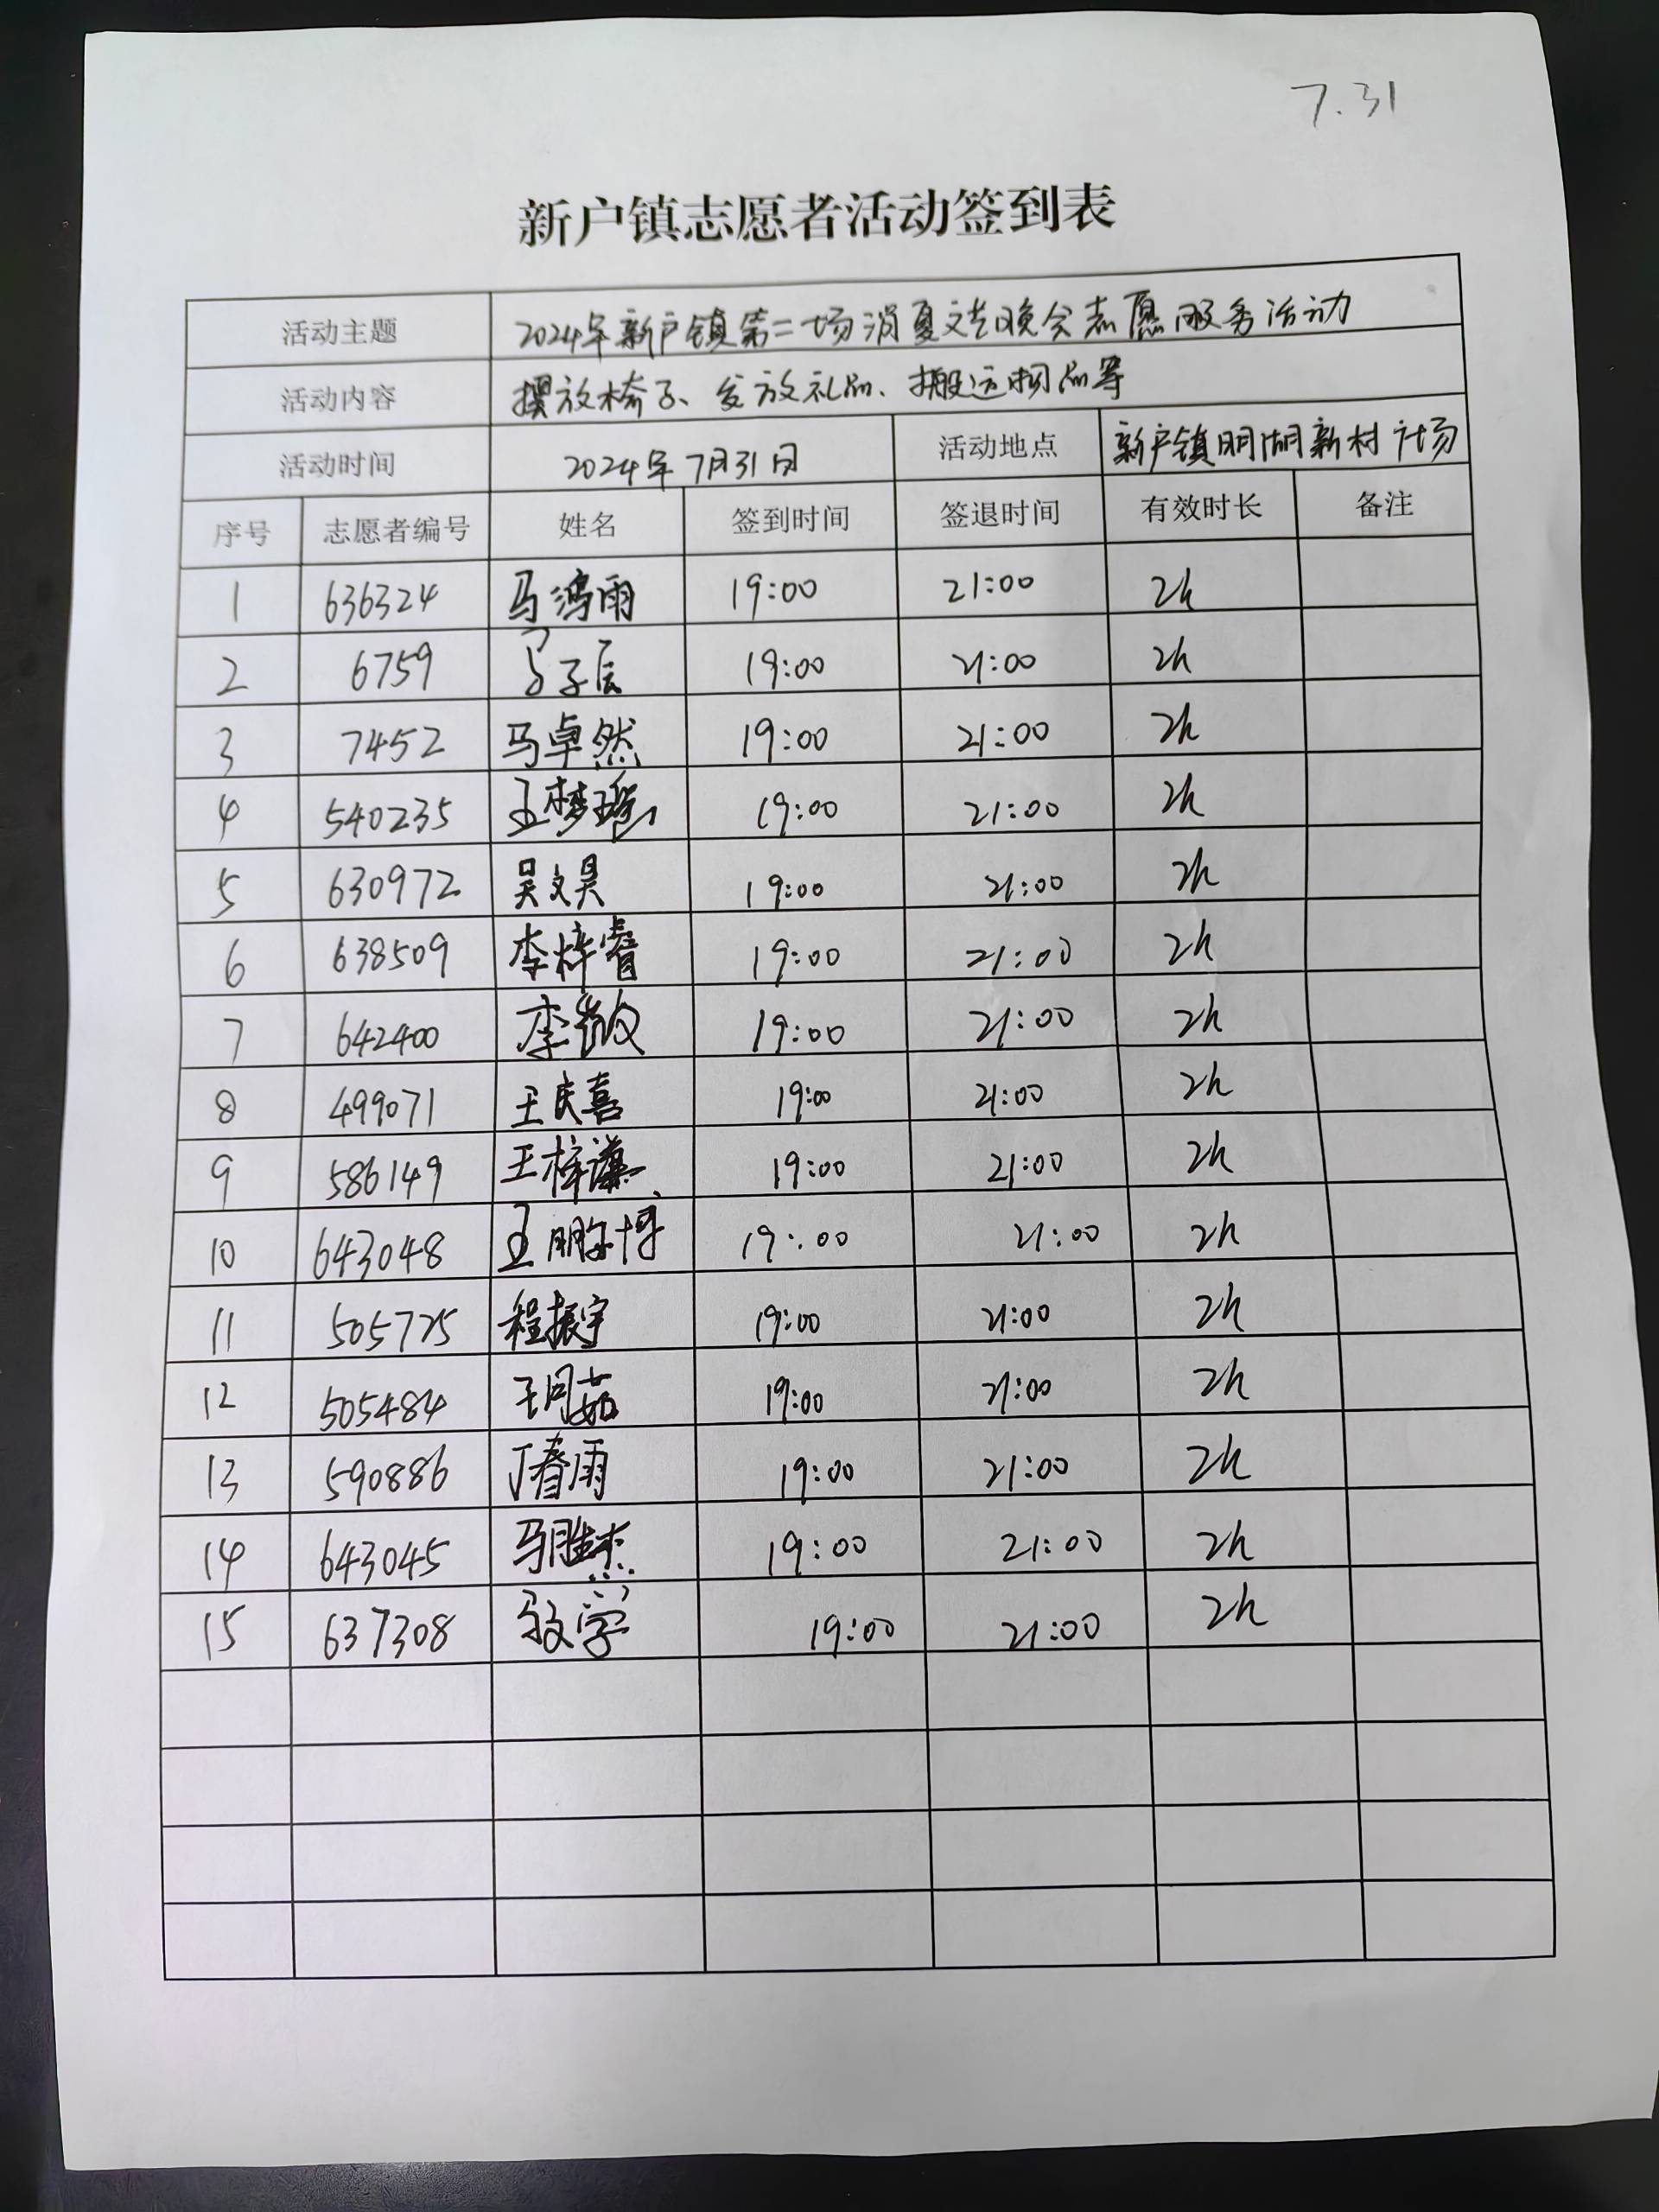 7.31
新户镇志愿者活动签到表
活动主题 2024年新户镇第二场消夏文艺晚会志愿服务活动
活动内容 摆放椅子、发放礼品、搬运物品等
活动时间 2024年7月31日 活动地点 新户镇明湖新村广场
序号 志愿者编号 姓名 签到时间 签退时间 有效时长 备注
1 636324 马鸿雨 19:00 21:00 2h
2 6759 子辰 19:00 21:00 2h
3 7452 马卓然 19:00 21:00 2h
4 540235 王梦瑶 19:00 21:00 2h
5 630972 吴文昊 19:00 21:00 2h
6 638509 李梓睿 19:00 21:00 2h
7 642400 李 19:00 21:00 2h
8 499071 王庆喜 19:00 21:00 2h
9 586149 王梓谦 19:00 21:00 2h
10 643048 王鹏博 19:00 21:00 2h
11 505725 程振宇 19:00 21:00 2h
12 505484 王同茹 19:00 21:00 2h
13 590886 丁春雨 19:00 21:00 2h
14 643045 马胜杰 19:00 21:00 2h
15 637308 马文学 19:00 21:00 2h